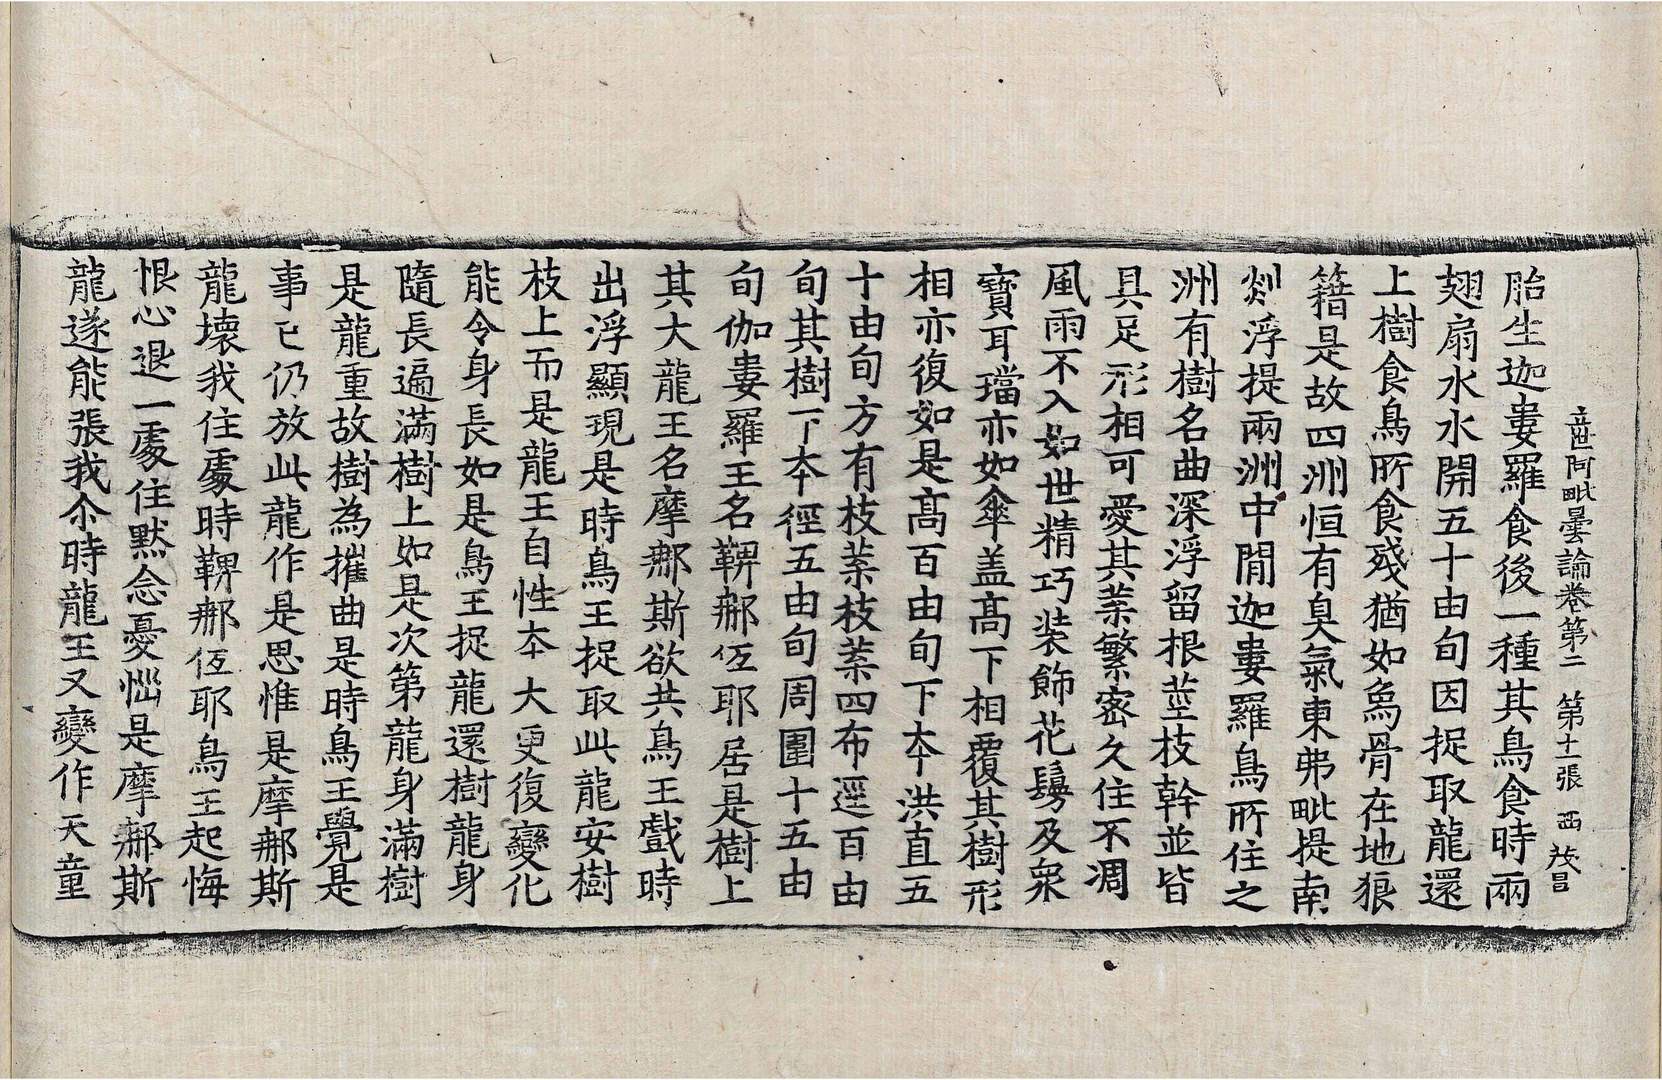 立世阿毗曇論卷第二　第十一張　西　茂昌
胎生迦婁羅食後一種其鳥食時兩
翅扇水水開五十由旬因捉取龍還
上樹食鳥所食殘猶如魚骨在地狼
籍是故四洲恒有臭氣東弗毗提南
剡浮提兩洲中閒迦婁羅鳥所住之
洲有樹名曲深浮留根莖枝幹並皆
具足形相可愛其葉繁密久住不凋
風雨不入如世精巧裝飾花鬘及衆
寶耳璫亦如傘盖髙下相覆其樹形
相亦復如是髙百由旬下本洪直五
十由旬方有枝葉枝葉四布逕百由
旬其樹下本徑五由旬周圍十五由
旬伽婁羅王名鞞郍低耶居是樹上
其大龍王名摩郍斯欲共鳥王戲時
出浮顯現是時鳥王捉取此龍安樹
枝上而是龍王自性本大更復變化
能令身長如是鳥王捉龍還樹龍身
隨長遍滿樹上如是次第龍身滿樹
是龍重故樹為摧曲是時鳥王覺是
事已仍放此龍作是思惟是摩郍斯
龍壞我住處時鞞郍低耶鳥王起悔
恨心退一處住黙念憂惱是摩郍斯
龍遂能張我尒時龍王又變作天童